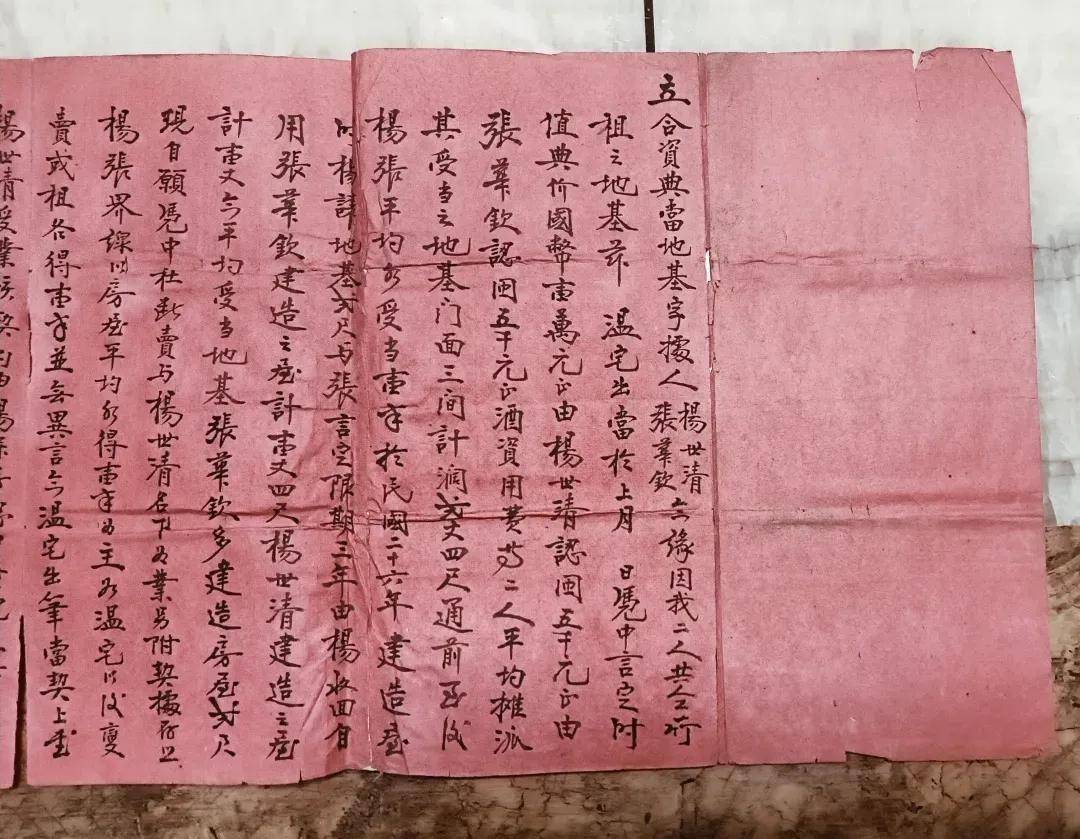 立合資典當地基字據人楊世清張華欽 緣因我二人共仝
祖之地基前 溫宅出當於上月 日凴中言定時
值典价國幣壹萬元正由楊世清認国五千元正由
張華欽認国五千元正酒資用費等二人平均攤派
其受当之地基门面三间計濶弍丈四尺通前至後
楊張平均受当壹半於民國二十六年建造屋
時楊讓地基弍尺与張言定限期三年由楊收回自
用張華欽建造之屋計壹丈四尺楊世清建造之屋
計壹丈 平均受当地基張華欽多建造房屋弍尺
現自願凴中杜斷賣与楊世清名下為業另附契據存照
楊張界線以房屋平均各得壹半為主如溫宅以後變
賣或租各得壹半並無異言 溫宅出筆當契上
楊世清受業